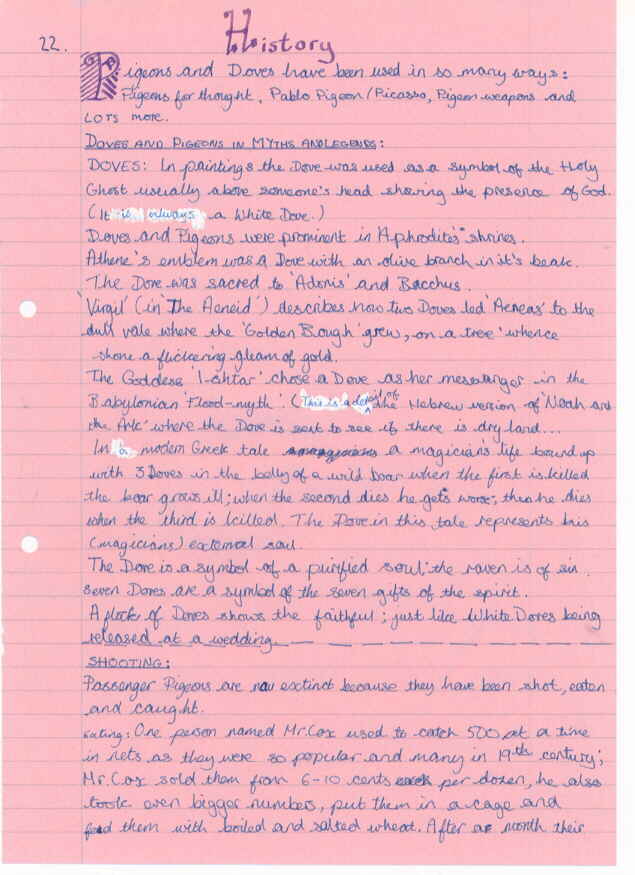 22.
History
Pigeons and Doves have been used in so many ways:
Pigeons for thought, Pablo Pigeon/Picasso, Pigeon weapons and
LOTS more.
DOVES AND PIGEONS IN MYTHS AND LEGENDS:
DOVES: In paintings the Dove was used as a symbol of the Holy
Ghost usually above someone's head showing the presence of God.
(It is always a White Dove.)
Doves and Pigeons were prominent in Aphrodite's shrines.
Athene's emblem was a Dove with an olive branch in it's beak.
The Dove was sacred to 'Adonis' and Bacchus.
'Virgil' (in 'The Aeneid') describes how two Doves led 'Aeneas' to the
dull vale where the 'Golden Bough' grew, on a tree 'whence
shone a flickering gleam of gold.
The Goddess 'Ishtar' chose a Dove as her messanger in the
Babylonian 'Flood-myth'. (This is a detail of the Hebrew version of 'Noah and
the Ark' where the Dove is sent to see if there is dry land...
In a modern Greek tale a magician's life bound up
with 3 Doves in the belly of a wild boar when the first is killed
the boar grows ill; when the second dies he gets worse; then he dies
when the third is killed. The Dove in this tale represents his
(magicians) external soul.
The Dove is a symbol of a purified soul; the raven is of sin.
Seven Doves are a symbol of the seven gifts of the spirit.
A flock of Doves shows the faithful; just like White Doves being
released at a wedding.
SHOOTING:
Passenger Pigeons are now extinct because they have been shot, eaten
and caught.
Eating: One person named Mr. Cox used to catch 500 at a time
in nets as they were so popular and many in 19th century;
Mr. Cox sold them from 6-10 cents per dozen, he also
took even bigger numbers, put them in a cage and
feed them with boiled and salted wheat. After a month their